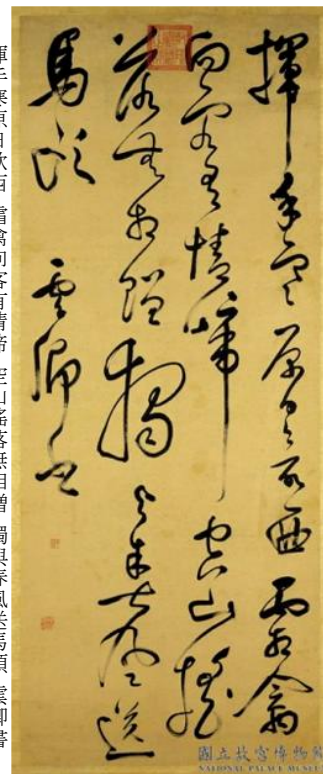 揮手寒原日欲西霜禽
向客有情啼空山搖
落無相贈獨與春風送
馬蹄 雲卿書
揮手寒原日欲西 霜禽向客有情啼 空山搖落無相贈 獨與春風送馬頭 雲卿書
國立故宮博物院
NATIONAL PALACE MUSEUM